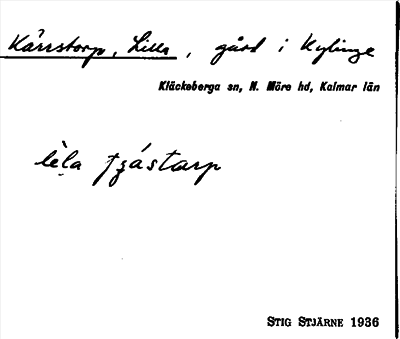 Kärrstorp, Lilla, gård i Kylinge
Kläckeberga sn, N. Möre hd, Kalmar län
lèla
STIG STJÄRNE 1936